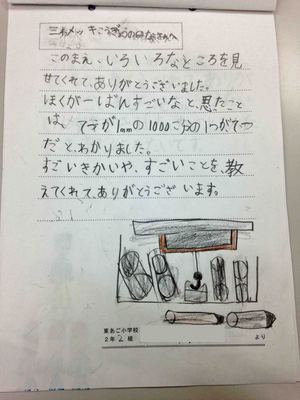 三木メッキこうぎょうのみなさんへ
このまえ、いろいろなところを見
せてくれて、ありがとうございました。
ぼくが一ばんすごいなと、思たこと
は、
が1mmの1000ごぶんの1つが
だと、わかりました。
すごいきかいや、すごいことを、教
えてくれて、ありがとうございます。
東あご小学校
2年2組
より